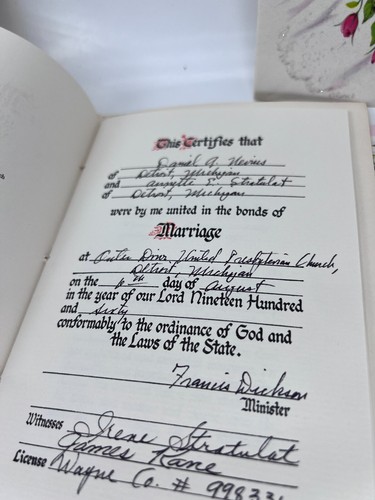 This Certifies that
Daniel A. Nevius
of Detroit, Michigan
and Annette E. Stratulat
of Detroit, Michigan
were by me united in the bonds of
Marriage
at Outer Drive United Presbyterian Church,
Detroit, Michigan
on the day of August
in the year of our Lord Nineteen Hundred
and Sixty
conformably to the ordinance of God and
the Laws of the State.
Francis Dickson
Minister
Witnesses Irene Stratulat
James Kane
License Wayne Co. #